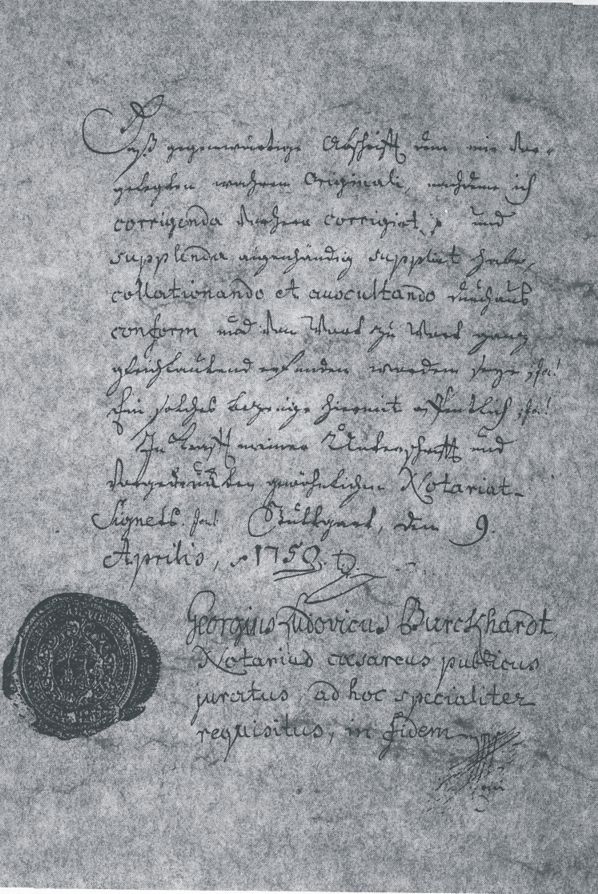 Daß gegenwärtige Abschrifft dem mir vor-
gelegten wahren Originali, nachdeme ich
corrigenda vorhero corrigirt, und
supplenda aigenhändig supplirt habe,
collationando et auscultando durchaus
conform und von Wort zu Wort ganz
gleichlautend erfunden worden seye,
Ein solches bezeuge hiermit offentlich
In krafft meiner Unterschrifft und
vorgedruckten gewöhnlichen Notariat-
Signets. Stuttgart, den 9.
Aprilis, 1750.
Georgius Ludovicus Burckhardt,
Notarius caesareus publicus
juratus, ad hoc specialiter
requisitus, in fidem